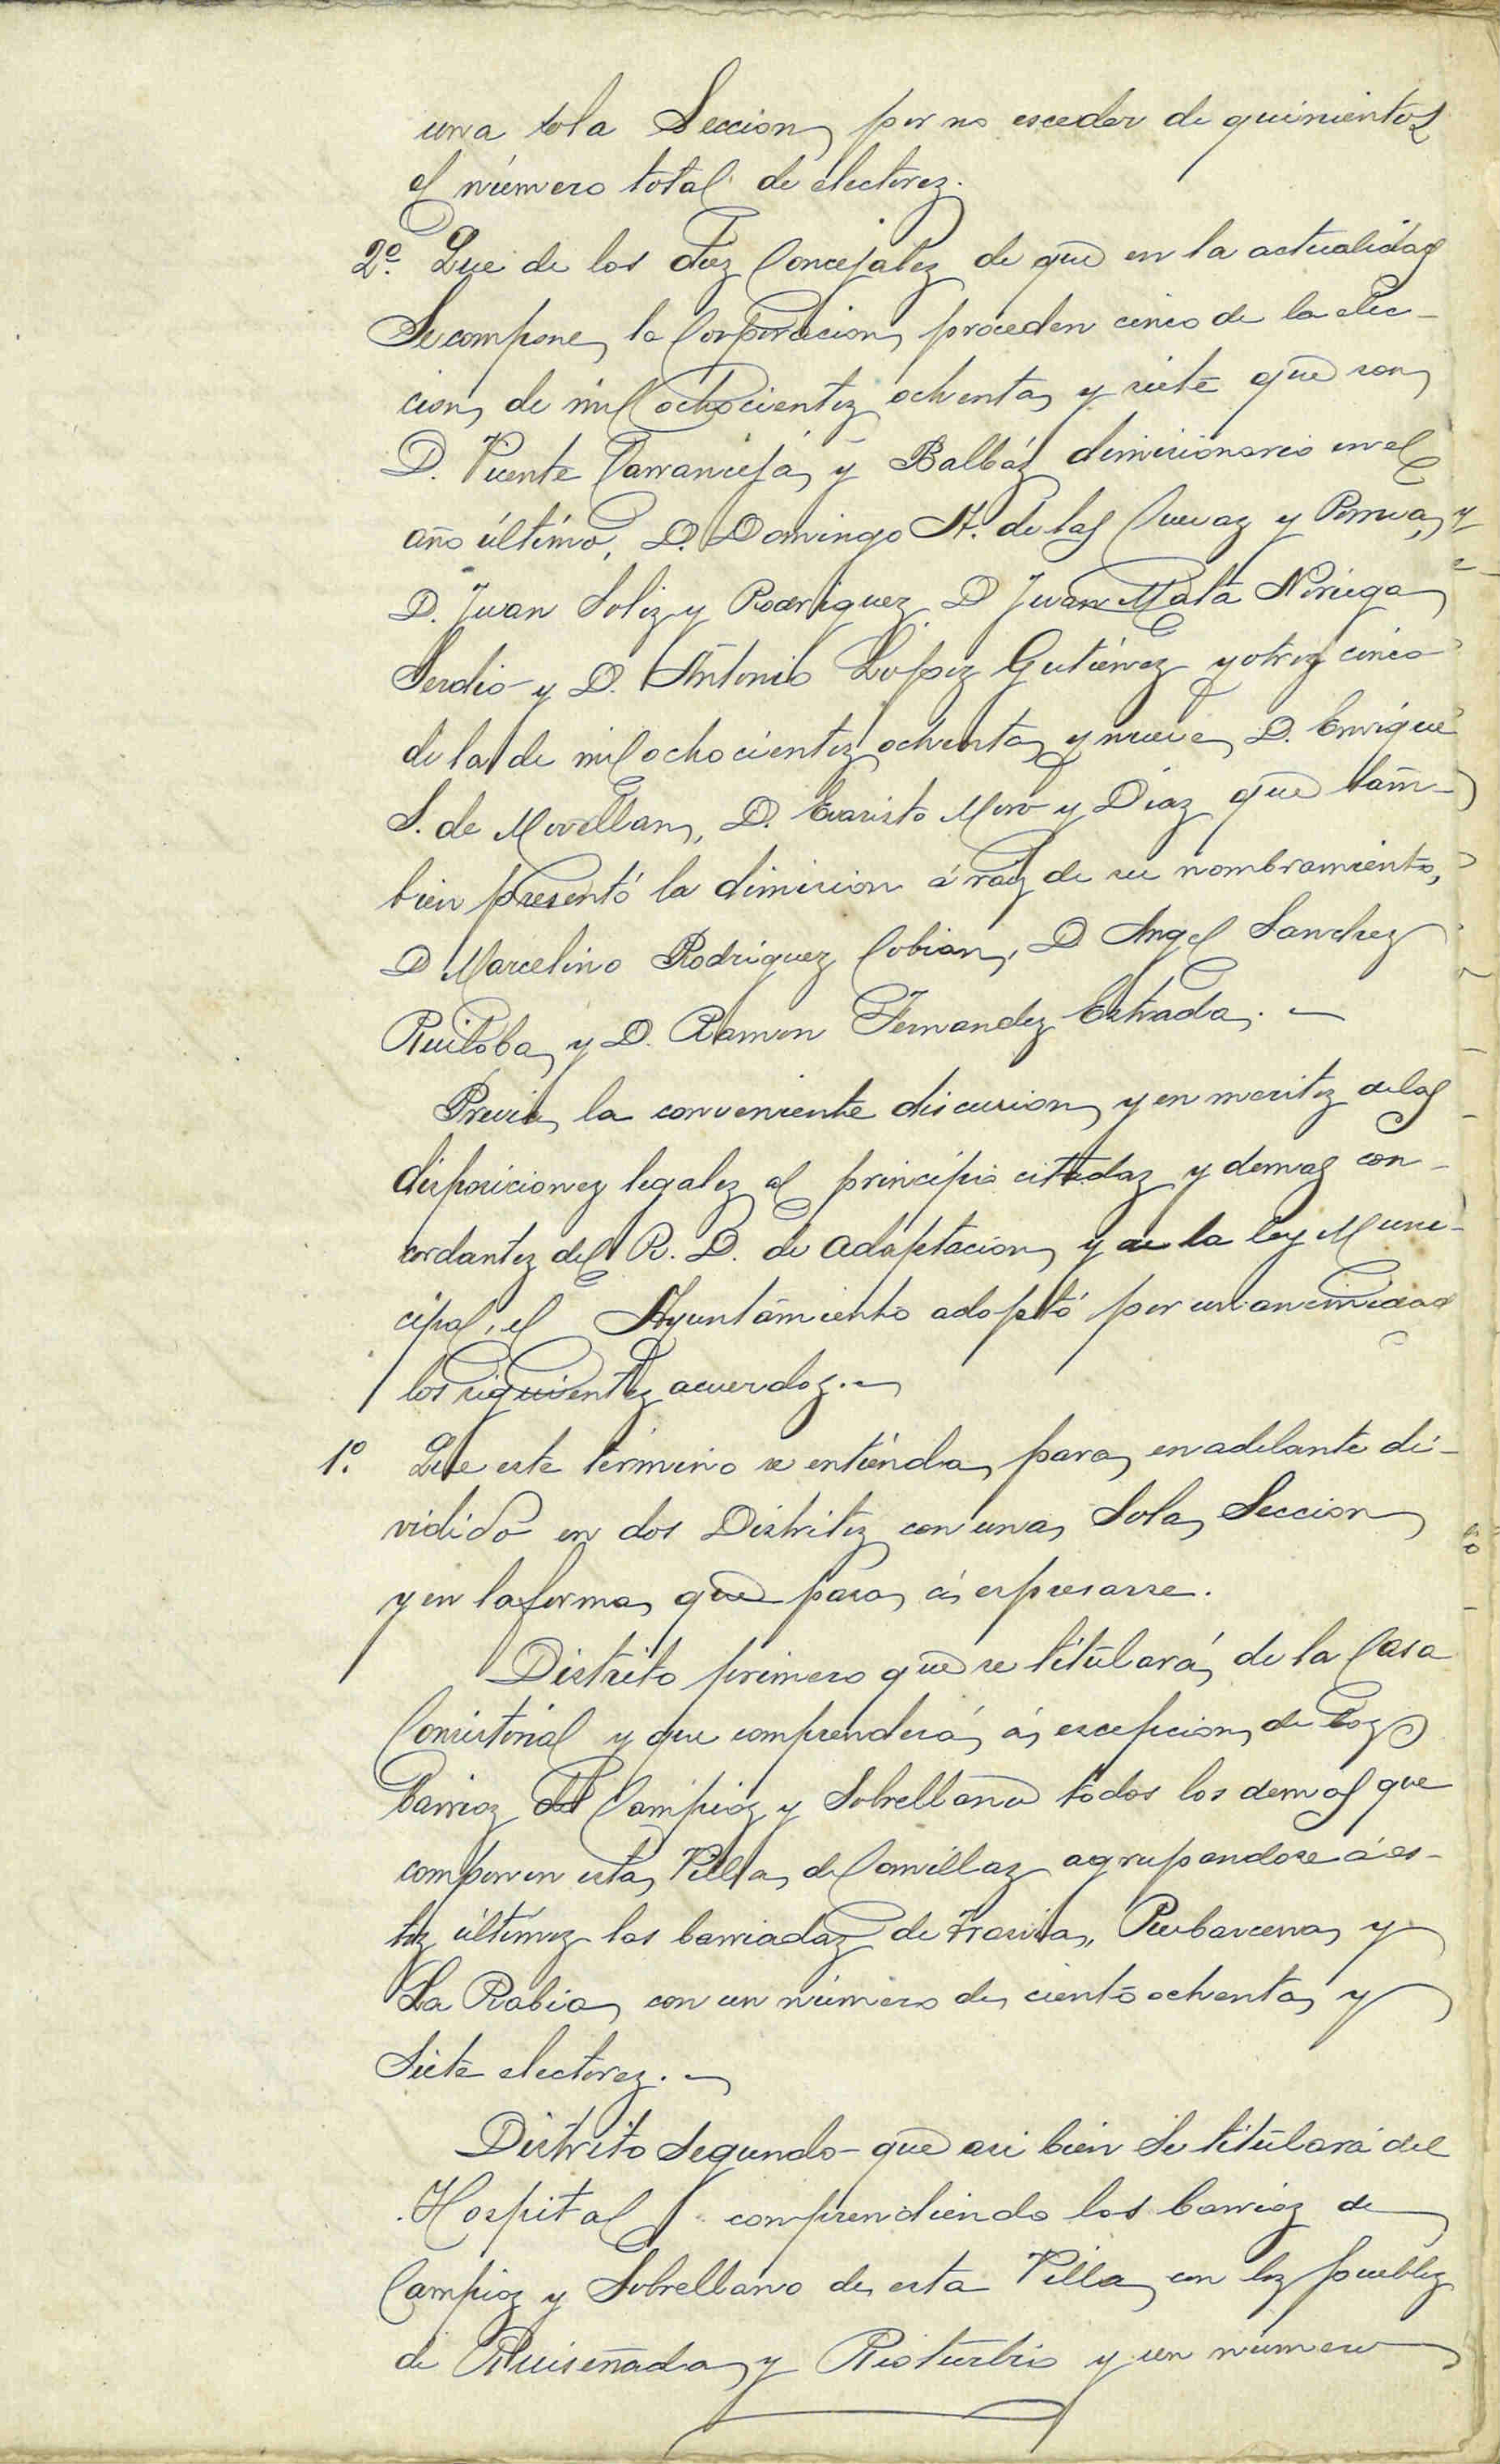 una sola Seccion por no esceder de quinientos
el número total de electores.
2º. Que de los diez Concejales de que en la actualidad
Se compone la Corporacion, proceden cinco de la elec-
cion de mil ochocientos ochenta y siete que son
D. Vicente Carranceja y Balbás dimisionario en el
año último, D. Domingo A. de las Cuevas y Perrua,
D. Juan Solis y Rodriguez, D Juan Mata Noriega
Serdio y D. Antonio Lopez Gutiérrez y otros cinco
de la de mil ochocientos ochenta y nueve, D. Enrique
S. de Movellan, D. Evaristo Moro y Diaz que tam-
bien presentó la dimision á raiz de su nombramiento,
D Marcelino Rodriguez Cobian, D Angel Sanchez
Ruiloba y D. Ramon Fernandez Estrada.
Previa la conveniente discusion y en meritos de las
disposiciones legales al principio citadas y demas con-
cordantes del R. D. de adaptacion y de la ley Muni-
cipal, el Ayuntamiento adoptó por unanimidad
los siguientes acuerdos.
1º. Que este término se entienda para en adelante di-
vidido en dos Distritos con una Sola Seccion
y en la forma que pasa á espresarse.
Distrito primero que se titulará de la Casa
Consistorial y que comprenderá á escepcion de los
barrios del Campios y Sobrellano todos los demas que
componen esta Villa de Comillas agrupandose á es-
tos últimos las barriadas de Trasvia, Rubarcena y
La Rabia con un número de ciento ochenta y
Siete electores.
Distrito Segundo que asi bien Se titulará del
Hospital comprendiendo los barrios de
Campios y Sobrellano de esta Villa con los pueblos
de Ruiseñada y Rioturbio y un número